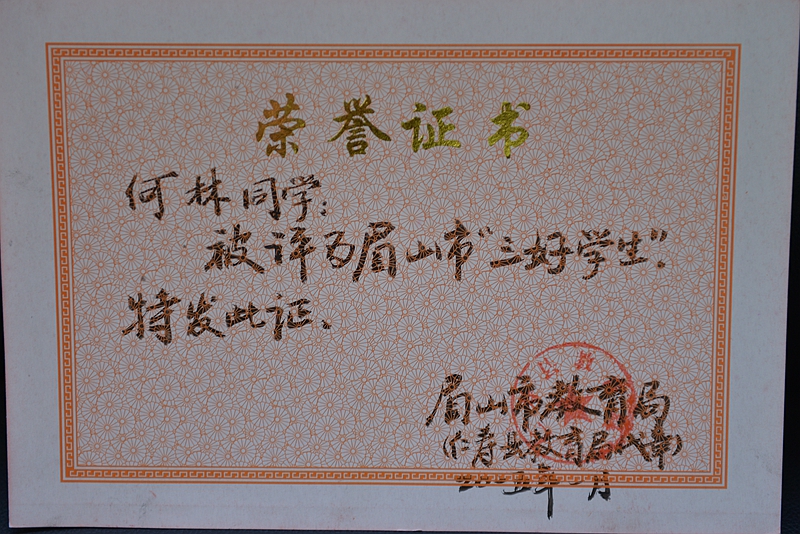 荣誉证书
何林同学:
被评为眉山市"三好学生".
特发此证.
眉山市教育局
(仁寿县教育局代章)
二〇〇五年一月